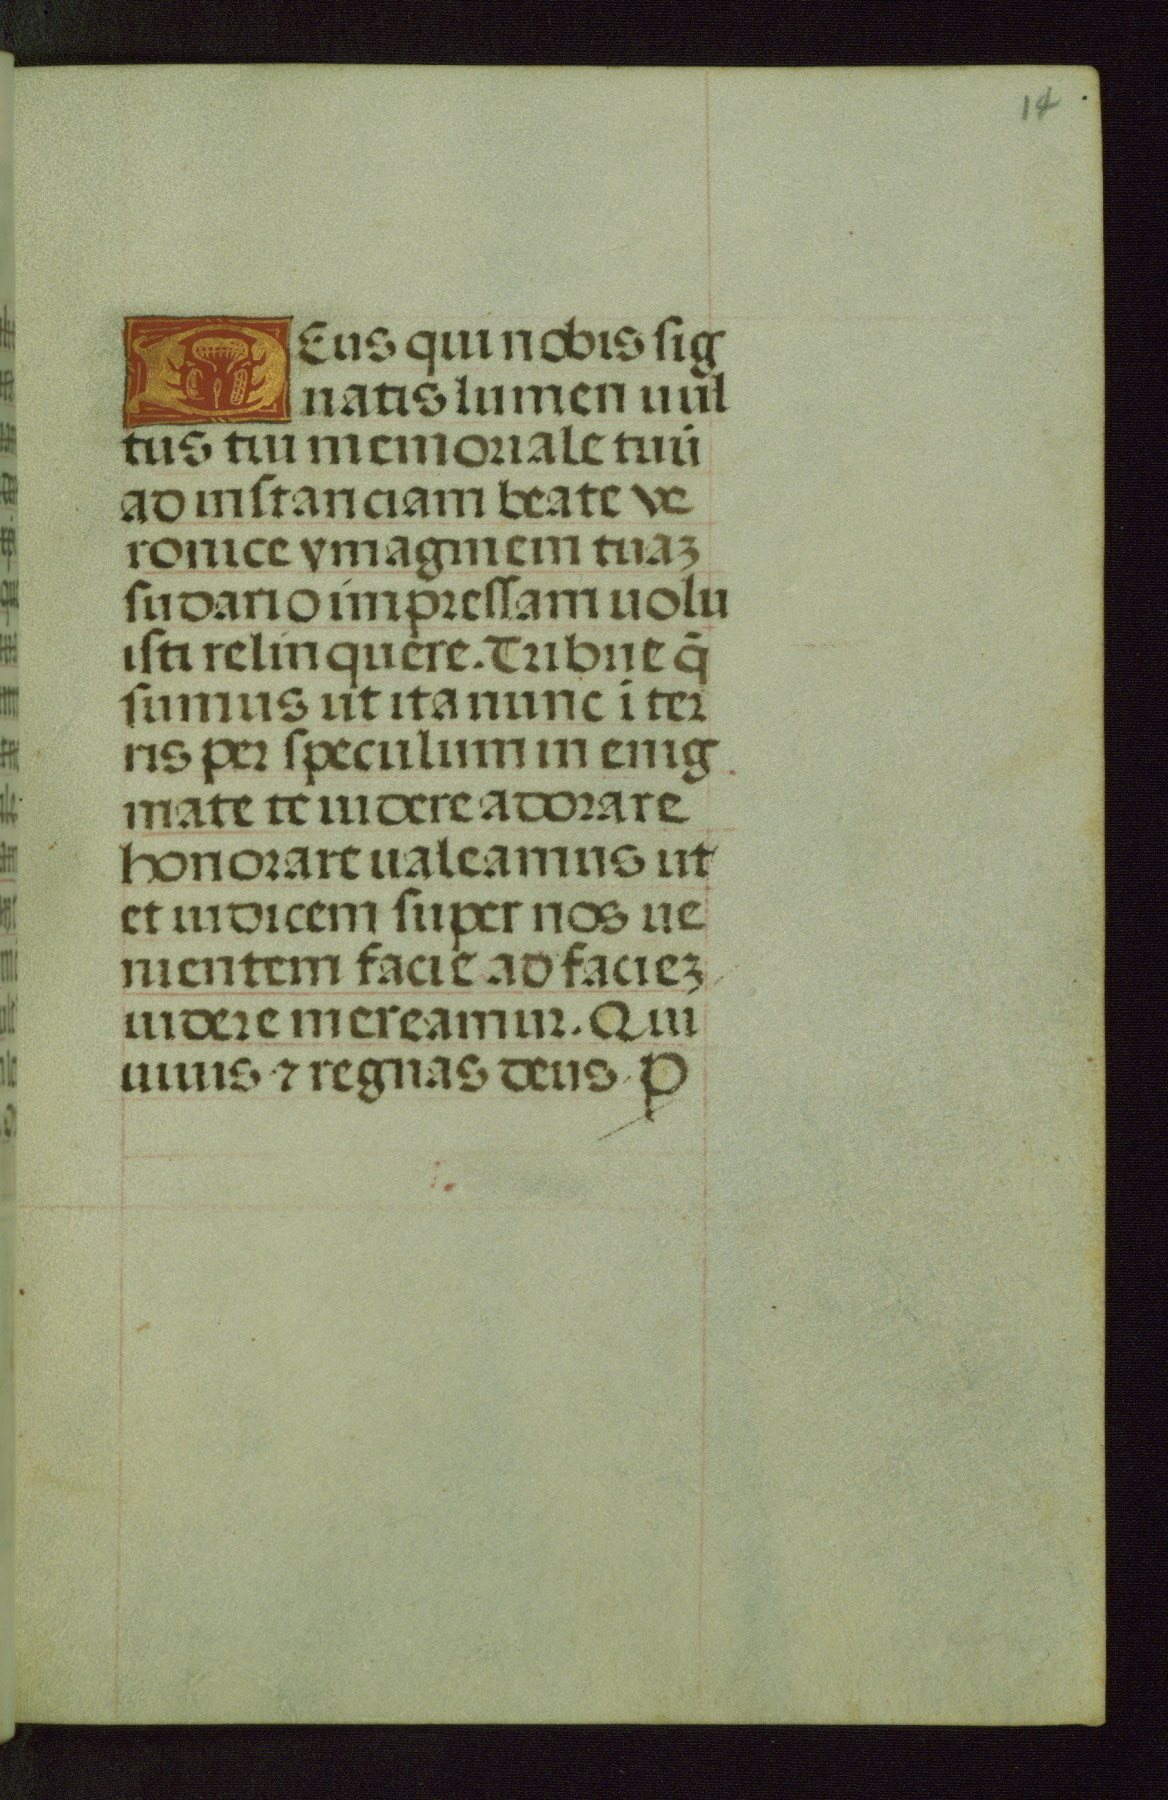 14
DEus qui nobis sig
natis lumen uul
tus tui memoriale tuū
ad instanciam beate ve
ronice ymaginem tuaꝫ
sudario impressam uolu
isti relinquere. Tribue q̄
sumus ut ita nunc ī ter
ris per speculum in enig
mate te uidere adorare
honorare ualeamus ut
et iudicem super nos ue
nientem facie ad facieꝫ
uidere mereamur. Qui
uiuis ⁊ regnas deus P